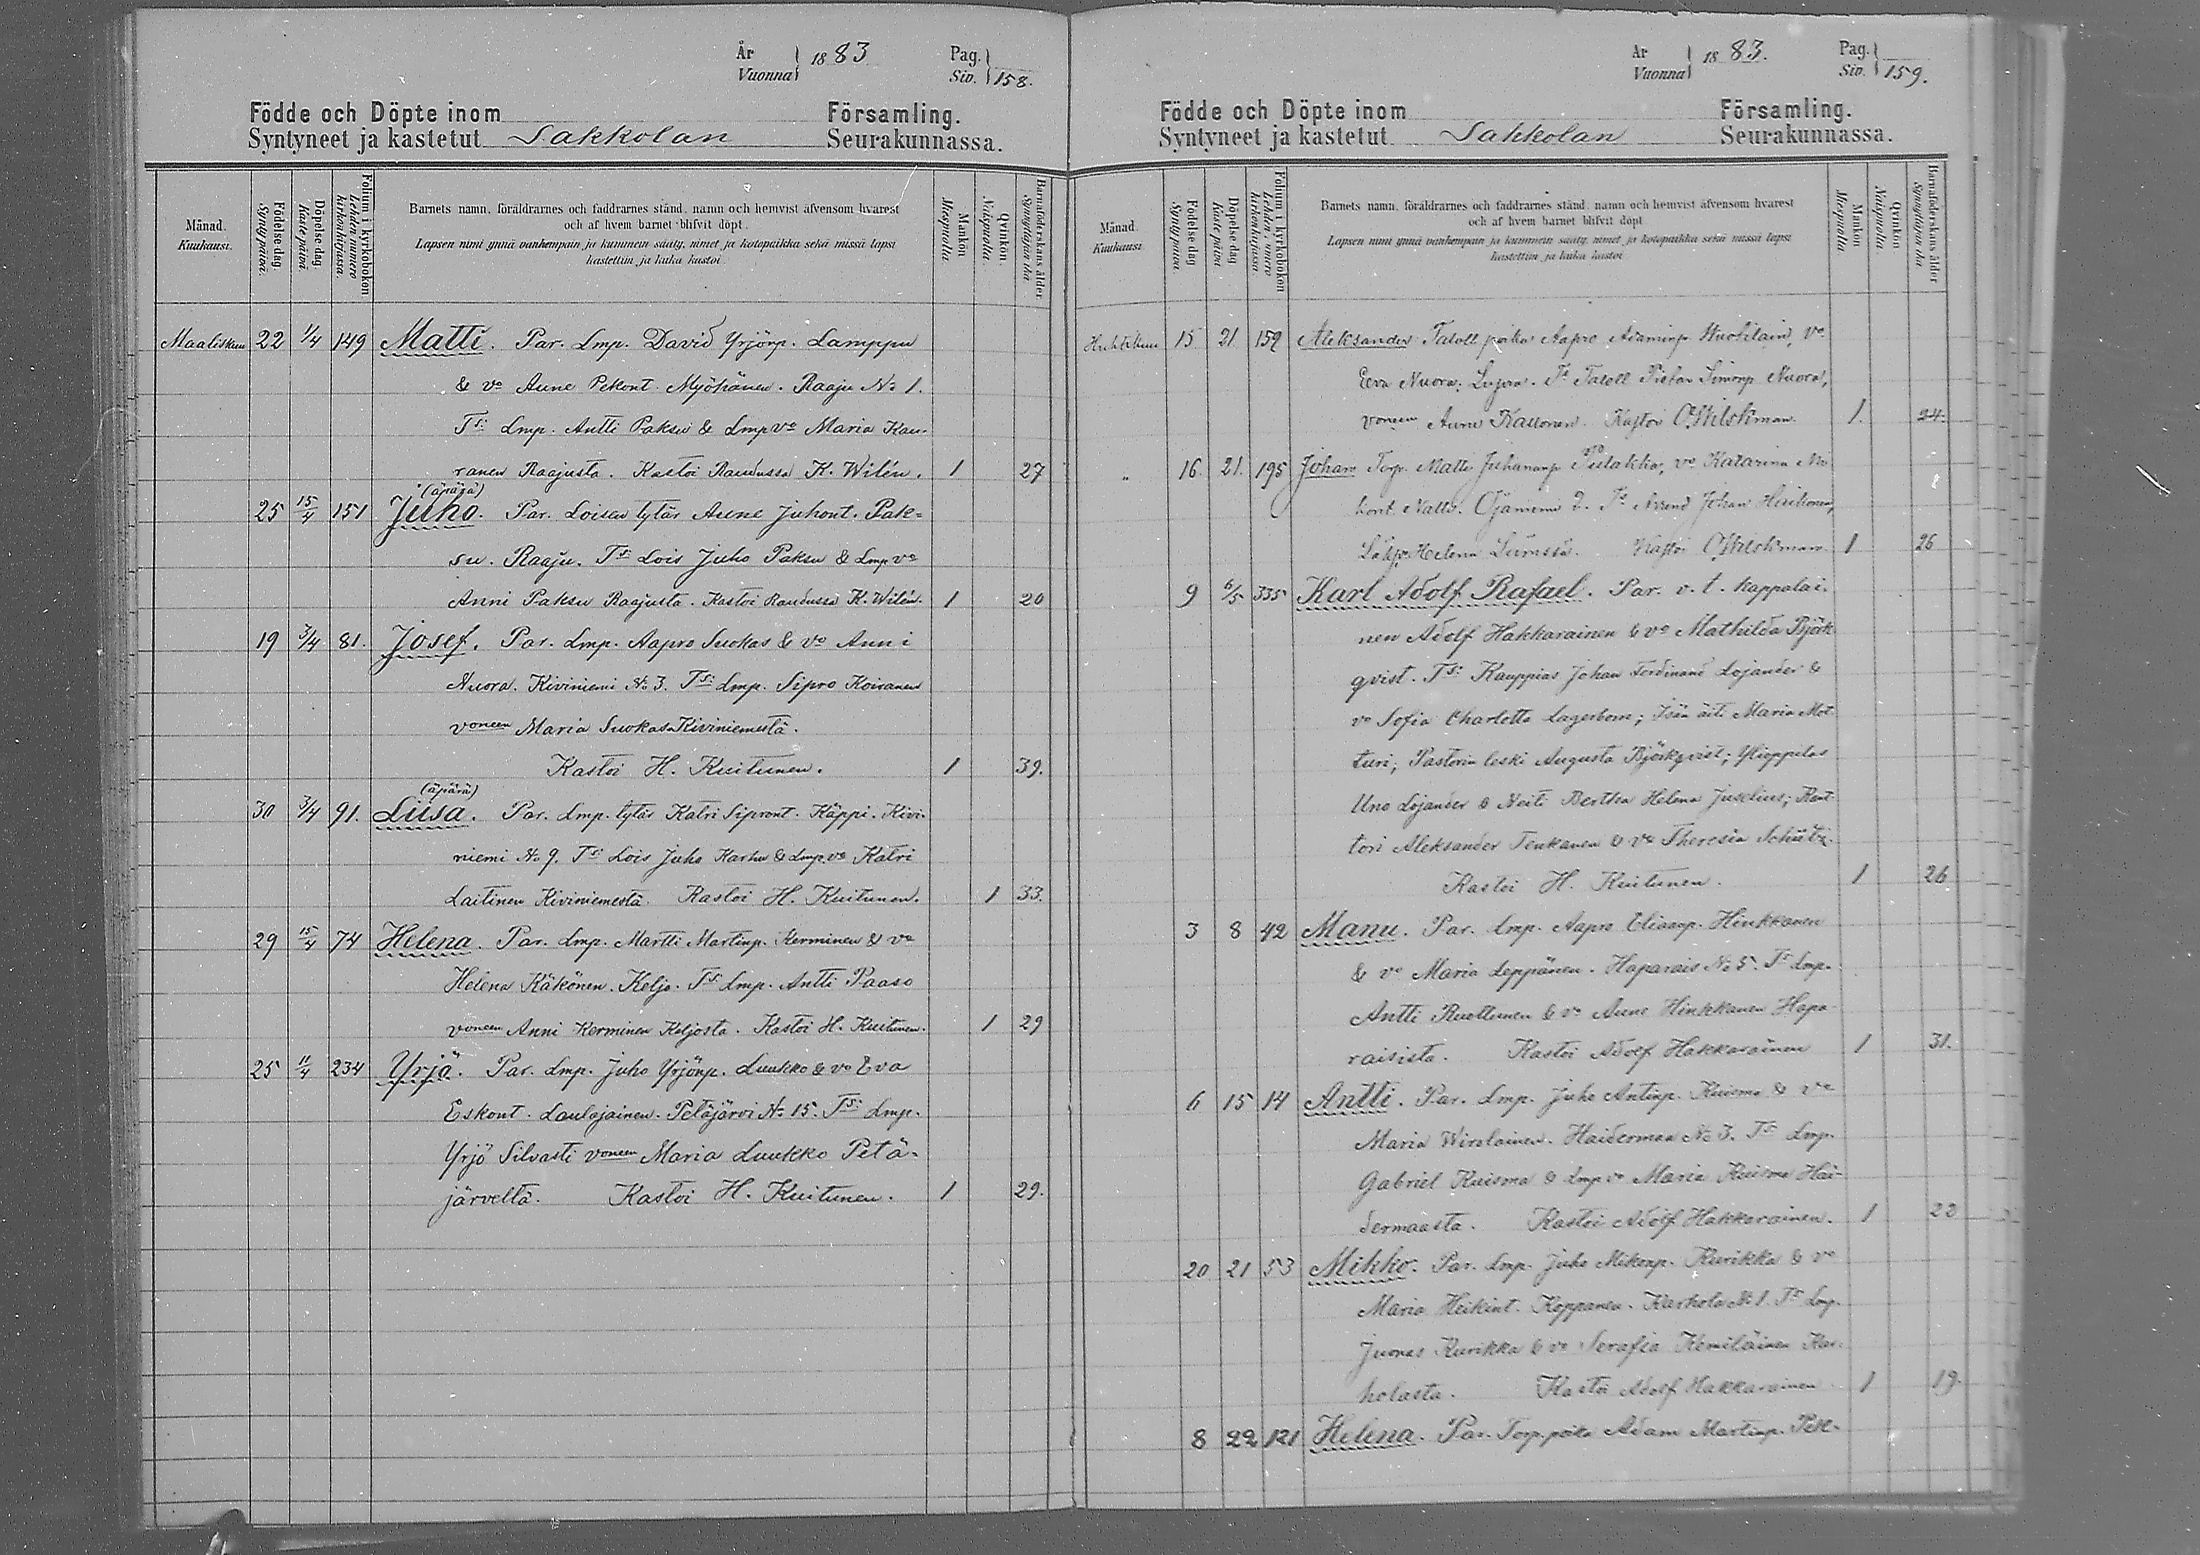 År
Vuonna
1883
Pag.
Siv.
158.
Födde och Döpte inom Församling.
Syntyneet ja kastetut Sakkolan Seurakunnassa.
Månad.
Kuukausi.
Födelsedag.
Syntypäivä.
Döpelsedag.
Kastepäivä.
Folium i kyrkoboken
Lehden numero kirkonkirjassa.
Barnets namn, föräldrarnes och faddrarnes stånd, namn och hemvist äfvensom hvarest
och af hvem barnet blifvit döpt.
Lapsen nimi ynnä vanhempain ja kummein sääty, nimet ja kotopaikka sekä missä lapsi
kastettiin ja kuka kastoi.
Mankön.
Miespuolia.
Qvinkön.
Naispuolia.
Barnaföderskans ålder
Synnyttäjän ikä.
Maaliskuu 22 1/4 149 Matti. Par. Lmp. David Yrjönp. Lamppu
& vo Aune Pekont. Myöhänen. Raaju No 1.
Ts: Lmp. Antti Paksu & Lmp vo Maria Kau-
ranen Raajusta. Kastoi Raudussa K. Wilén. 1 27
(äpärä)
25 15/4 151 Juho. Par. Loisen tytär Aune Juhont. Pak-
su. Raaju. Ts: Lois Juho Paksu & Lmp vo
Anni Paksu Raajusta. Kastoi Raudussa K. Wilén. 1 20
19 3/4 81. Josef. Par. Lmp. Aapro Suokas & vo Anni
Nuora. Kiviniemi No 3. Ts: Lmp. Sipro Koivanen
voneen Maria Suokas Kiviniemestä.
Kastoi H. Kuitunen. 1 39.
(äpärä)
30 3/4 91. Liisa. Par. Lmp. tytär Katri Sipront. Käppi. Kivi-
niemi No 9. Ts: Lois Juho Karhu & Lmp. vo Katri
Laitinen Kiviniemestä. Kastoi H. Kuitunen. 1 33.
29 15/4 74 Helena. Par. Lmp. Martti Martinp. Kerminen & vo
Helena Käkönen. Kelja. Ts: Lmp. Antti Paaso
voneen Anni Kerminen Keljosta. Kastoi H. Kuitunen. 1 29
25 11/4 234 Yrjö. Par. Lmp. Juho Yrjönp. Luukko & vo Eva
Eskont. Laulajainen. Petäjärvi No 15. Ts: Lmp.
Yrjö Silvasti voneen Maria Luukko Petä-
järveltä. Kastoi H. Kuitunen. 1 29.
År
Vuonna
1883.
Pag.
Siv.
159.
Födde och Döpte inom Församling.
Syntyneet ja kastetut Sakkolan Seurakunnassa.
Månad.
Kuukausi.
Födelsedag
Syntypäivä.
Döpelsedag
Kastepäivä
Folium i kyrkoboken
Lehden numero kirkonkirjassa.
Barnets namn, föräldrarnes och faddrarnes stånd, namn och hemvist äfvensom hvarest
och af hvem barnet blifvit döpt.
Lapsen nimi ynnä vanhempain ja kummein sääty, nimet ja kotopaikka sekä missä lapsi
kastettiin ja kuka kastoi.
Mankön
Miespuolia.
Qvinkön
Naispuolia.
Barnaföderskans ålder
Synnyttäjän ikä
Huhtikuu 15 21. 159 Aleksander Taloll poika Aapro Adaminp. vo
Eeva Nuora. Ts Taloll Pietari Simonp Nuora,
voneen Aune Kastoi 1. 24.
" 16. 21. 195 Johan Torp. Matti Juhananp vo Katarina
hont Ojaniemi 2. Ts Johan
Helena Kastoi 1 26
9 6/5 335 Karl Adolf Rafael. Par. v. t. kappalai-
nen Adolf Hakkarainen & vo Mathilda Björk-
qvist. Ts: Kauppias Johan Ferdinand Lojander &
vo Sofia Charlotta Lagerbom; Isän äiti Maria Mot-
turi; Pastorin leski Augusta Björkqvist; Ylioppilas
Uno Lojander & Neiti Bertha Helena Juselius; Kant-
tori Aleksander Tenkanen & vo Theresia Schütz.
Kastoi H. Kuitunen. 1 26
3 8 42 Manu. Par. Lmp. Aapro Eliaanp. Hinkkanen
& vo Maria Leppänen. Haparais No 5. Ts Lmp.
Antti Ruottunen & vo Aune Hinkkanen Hapa-
raisista. Kastoi Adolf Hakkarainen 1 31.
6 15 14 Antti. Par. Lmp. Juho Antinp. Kuisma & vo
Maria Wirolainen. Haiderman No 3. Ts Lmp.
Gabriel Kuisma & Lmp vo Maria Kuisma Hai-
dermaasta. Kastoi Adolf Hakkarainen. 1 22
20 21 53 Mikko. Par. Lmp. Juho Mikonp. Kurikka & vo
Maria Heikint. Koppanen. Karhola No 1. Ts Lmp.
Juonas Kurikka & vo Serafia Kemiläinen Kar-
holasta. Kastoi Adolf Hakkarainen 1 19.
8 22 121 Helena. Par. Torp. poika Adam Martinp.